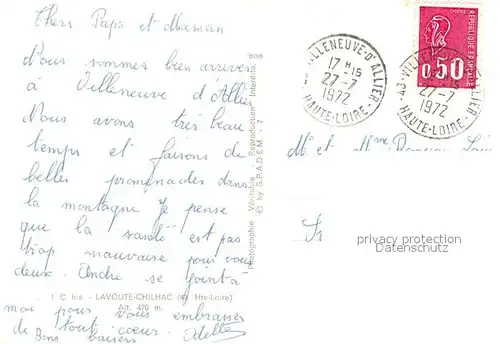 Chers Papa et Maman
Nous sommes bien arrivés
à Villeneuve d'Allier
Nous avons très beau
temps et faisons de
belles promenades dans
la montagne Je pense
que la santé est pas
trop mauvaise pour vous
deux. Andre se joint à
I C bis - LAVOUTE-CHILHAC (43 Hte-Loire)
Alt. 470 m.
moi pour vous embrasser
de tout coeur. Odette
Bons baisers
Photographie Véritable - Reproduction Interdite
© by S.P.A.D.E.M. - 7
VILLENEUVE-D'ALLIER
17 H 15
27-7
1972
HAUTE-LOIRE
43-VILLENEUVE-D'ALLIER
27-7
1972
HAUTE-LOIRE
REPUBLIQUE FRANCAISE
0,50
Mr et Mme
privacy protection
Datenschutz